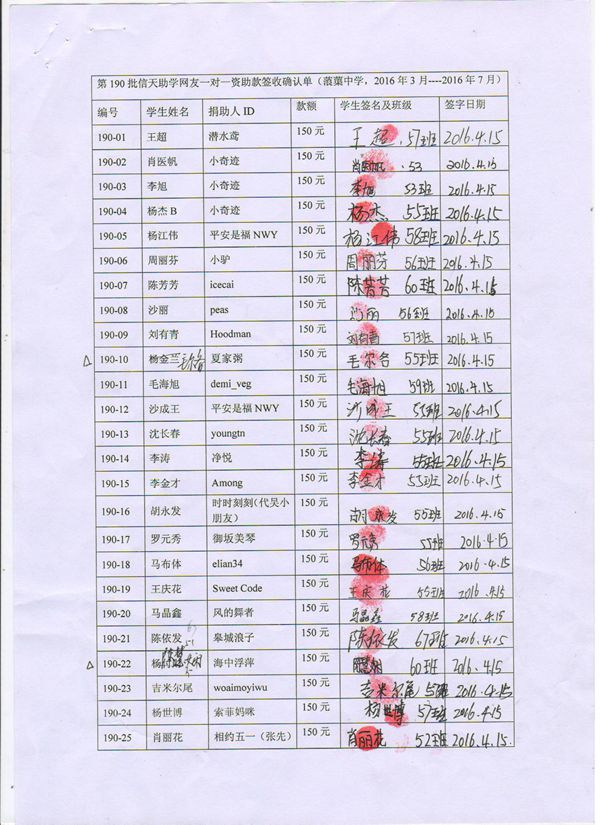 第 190 批信天助学网友一对一资助款签收确认单（菠萝中学，2016 年 3 月----2016 年 7 月）
编号 学生姓名 捐助人 ID 款额 学生签名及班级 签字日期
190-01 王超 潜水鸢 150 元 王超 57班 2016.4.15
190-02 肖医帆 小奇迹 150 元 肖医帆 53 2016.4.15
190-03 李旭 小奇迹 150 元 李旭 53班 2016.4.15
190-04 杨杰 B 小奇迹 150 元 杨杰 55班 2016.4.15
190-05 杨江伟 平安是福 NWY 150 元 杨江伟 58班 2016.4.15
190-06 周丽芬 小驴 150 元 周丽芬 56班 2016.4.15
190-07 陈芳芳 icecai 150 元 陈芳芳 60班 2016.4.15
190-08 沙丽 peas 150 元 沙丽 56班 2016.4.15
190-09 刘有青 Hoodman 150 元 刘有青 57班 2016.4.15
△ 190-10 杨金兰 夏家粥 150 元 毛尔各 55班 2016.4.15
190-11 毛海旭 demi_veg 150 元 毛海旭 59班 2016.4.15
190-12 沙成王 平安是福 NWY 150 元 沙成王 55班 2016.4.15
190-13 沈长春 youngtn 150 元 沈长春 55班 2016.4.15
190-14 李涛 净悦 150 元 李涛 55班 2016.4.15
190-15 李金才 Among 150 元 李金才 53班 2016.4.15
190-16 胡永发 时时刻刻（代吴小朋友） 150 元 胡永发 55班 2016.4.15
190-17 罗元秀 御坂美琴 150 元 罗元秀 55班 2016.4.15
190-18 马布体 elian34 150 元 马布体 56班 2016.4.15
190-19 王庆花 Sweet Code 150 元 王庆花 55班 2016.4.15
190-20 马晶鑫 风的舞者 150 元 马晶鑫 58班 2016.4.15
190-21 陈依发 皋城浪子 150 元 陈依发 67班 2016.4.15
△ 190-22 杨 海中浮萍 150 元 60班 2016.4.15
190-23 吉米尔尾 woaimoyiwu 150 元 吉米尔尾 55班 2016.4.15
190-24 杨世博 索菲妈咪 150 元 杨世博 57班 2016.4.15
190-25 肖丽花 相约五一（张先） 150 元 肖丽花 52班 2016.4.15